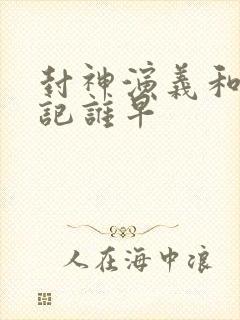 封神演义和
記誰早
人在海中浪